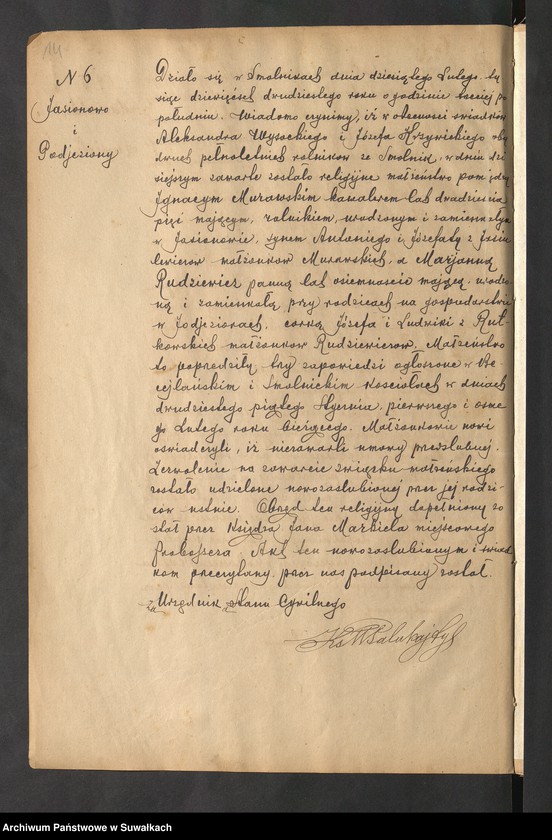 14
N 6
Jasionowo
i
Podjeziory
Działo się w Smolnikach dnia dziesiątego Lutego ty
siąc dziewięćset drudziestego roku o godzinie trzeciej po
południu. Wiadomo czynimy, iż w obecności świadków
Aleksandra Wysockiego i Józefa Krzywickiego oby
dwuch pełnoletnich rolników ze Smolnik, w dniu dzi
siejszym zawarte zostało religijne małżeństwo pomiędzy
Ignacym Murawskim kawalerem lat dwadzieścia
pięć mającym, rolnikiem, urodzonym i zamieszkałym
w Jasionowie, synem Antoniego i Józefaty z
małżonków Murawskich, a Marjanną
Rudziewicz panną lat ośiemnaście mającą, urodzo
ną i zamieszkałą przy rodzicach na gospodarstwie
w Podjeziorach, córką Józefa i Ludwiki z Rut
kowskich małżonków Rudziewiczów. Małżeństwo
to poprzedziły trzy zapowiedzi ogłoszone w Be
cejlańskim i Smolnickim Kościołach w dniach
drudziestego piątego Stycznia, pierwszego i ósme
go Lutego roku bieżącego. Małżonkowie nowi
oświadczyli, iż niezawarli umowy przedślubnej.
Zezwolenie na zawarcie związku małżeńskiego
zostało udzielone nowozaślubionej przez jej rodzi-
ców ustnie. Obrzęd ten religijny dopełniony zo
stał przez Księdza Jana Markiela miejscowego
Proboszcza. Akt ten nowozaślubionym i świad
kom przeczytany, przez nas podpisany został.
za Urzędnik Stanu Cywilnego
Archiwum Państwowe w Suwałkach